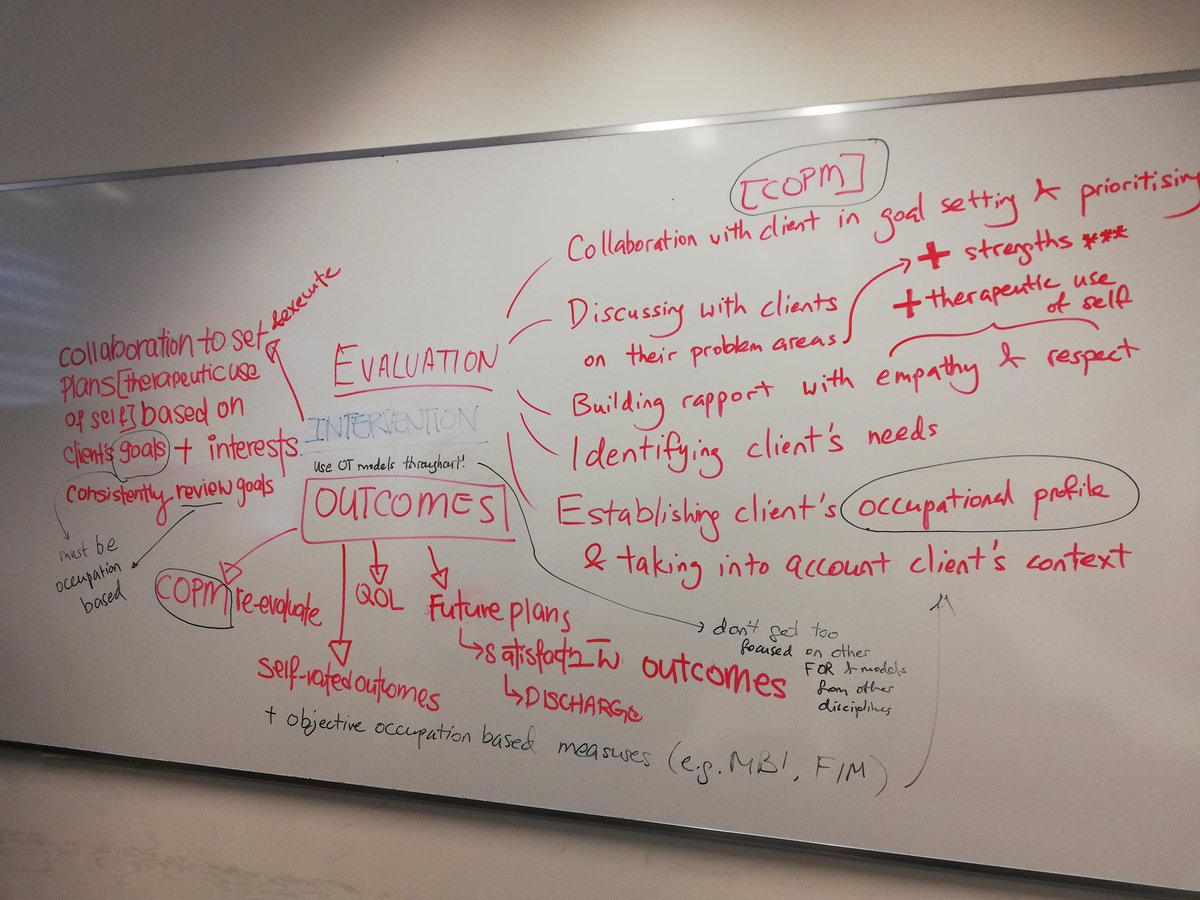 [COPM]
Collaboration with client in goal setting & prioritising
+ strengths ***
+ therapeutic use
of self
Discussing with clients
on their problem areas
Building rapport with empathy & respect
Identifying client's needs
Establishing client's occupational profile
& taking into account client's context
EVALUATION
INTERVENTION
use OT models throughout!
OUTCOMES
& execute
collaboration to set
plans [therapeutic use
of self] based on
client's goals + interests
consistently review goals
must be
occupation
based
COPM re-evaluate
QOL
Future plans
satisfactn w outcomes
DISCHARGE
self-rated outcomes
don't get too
focused on other
FOR & models
from other
disciplines
+ objective occupation based measures (e.g. MBI, FIM)